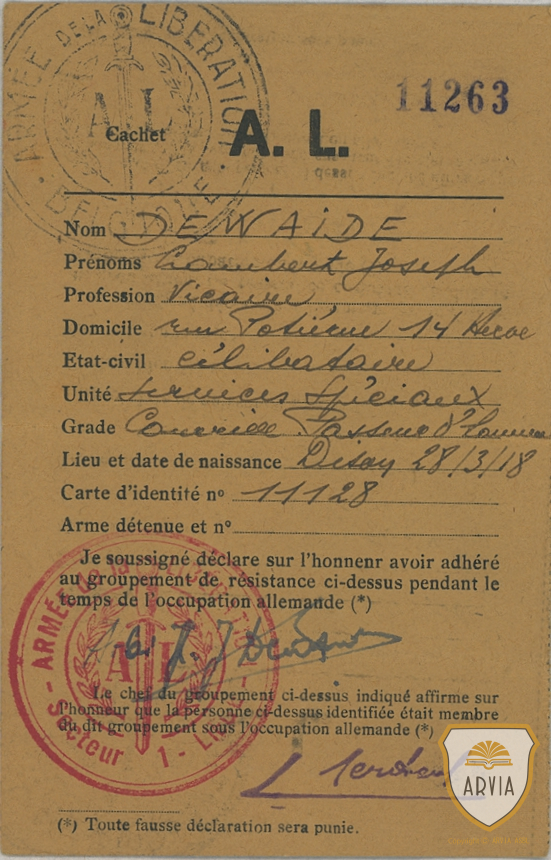 ARMÉE DE LA LIBÉRATION
BELGIQUE
A L
Cachet
11263
A. L.
Nom DEWAIDE
Prénoms Lambert Joseph
Profession Vicaire
Domicile rue Potiérue 14 Herve
Etat-civil célibataire
Unité services spéciaux
Grade Courrier Passeur d'hommes
Lieu et date de naissance Dison 28/3/18
Carte d'identité nº 11128
Arme détenue et nº
Je soussigné déclare sur l'honnenr avoir adhéré
au groupement de résistance ci-dessus pendant le
temps de l'occupation allemande (*)
ARMÉE
A L
Secteur 1 -
Le chef du groupement ci-dessus indiqué affirme sur
l'honneur que la personne ci-dessus identifiée était membre
du dit groupement sous l'occupation allemande (*)
ARVIA
(*) Toute fausse déclaration sera punie.